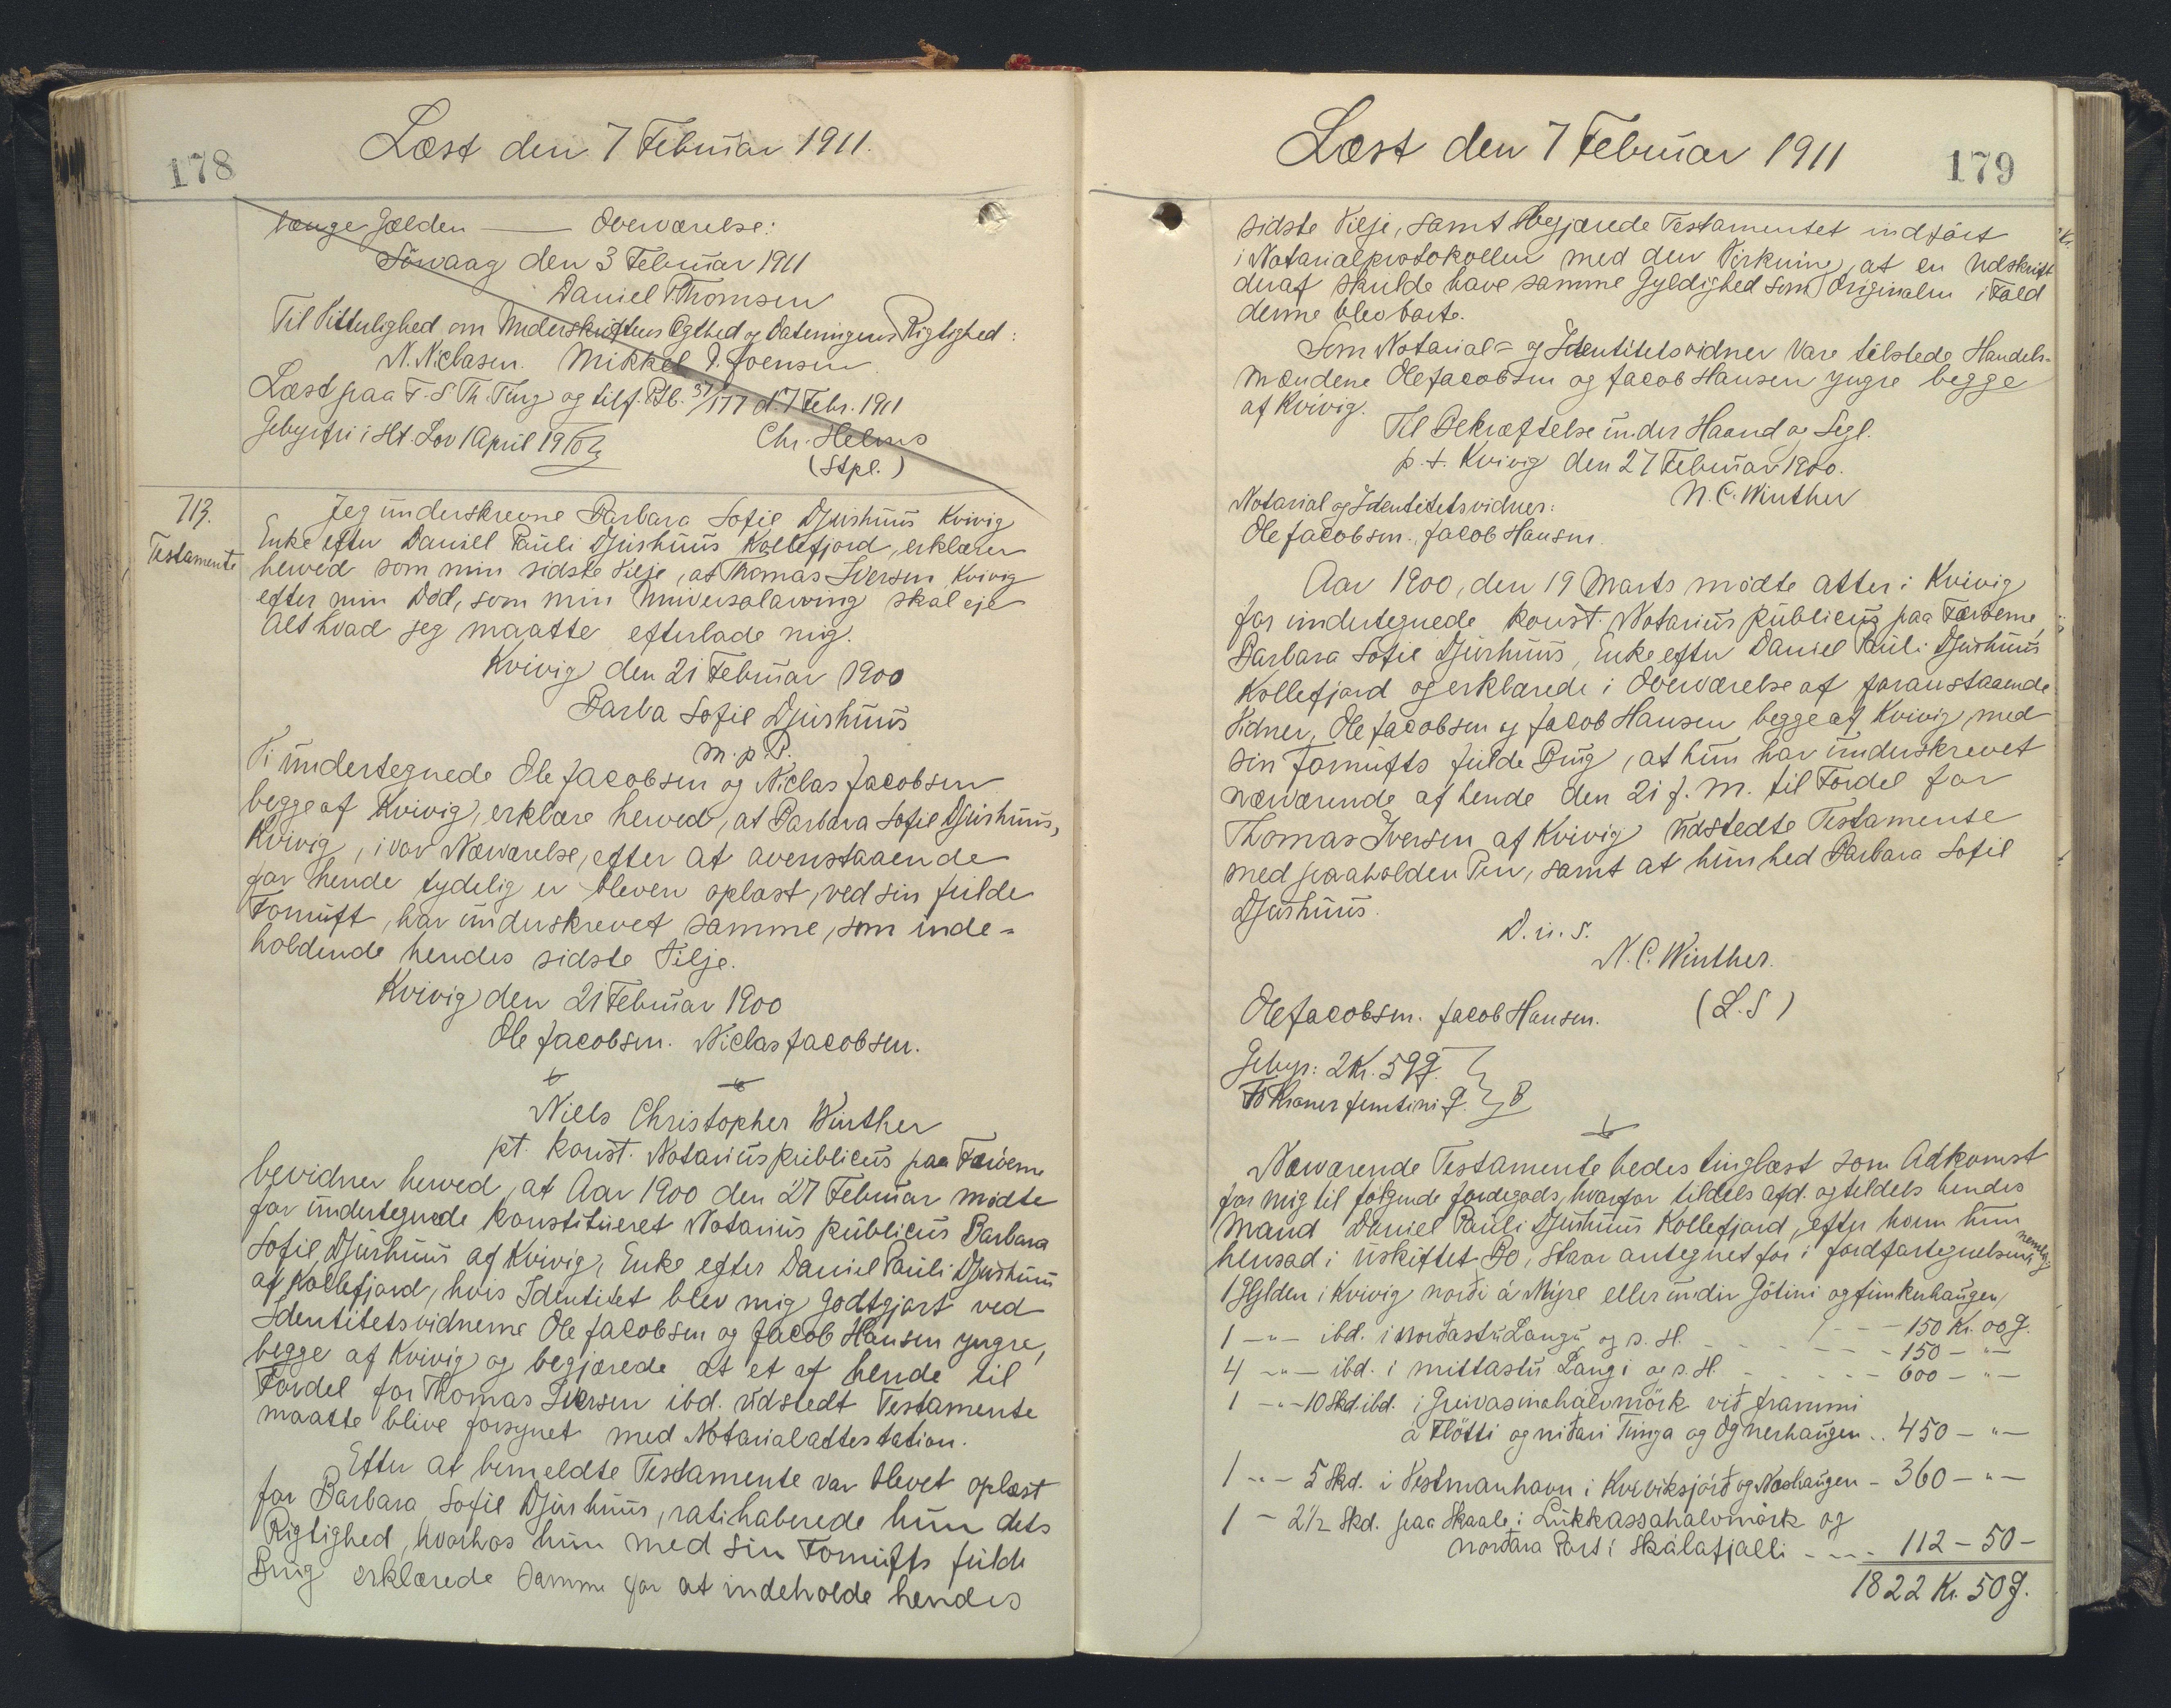 178
Læst den 7 Februar 1911.
længe Gælden — Overværelse:
Sörvaag den 3 Februar 1911
Daniel P. Thomsen
Til Vitterlighed om Underskriftens Ægthed og Dateringens Rigtighed:
N. Niclasen. Mikkel J. Joensen.
Læst paa F. S Th. Ting og tilf. Ptb. 37/177 d. 7 Febr. 1911
Gebyrfri i Ht. Lov 1 April 1910
Chr. Helms
(Stpl.)
713.
Testamente
Jeg underskrevne Barbara Sofie Djurhuus Kvivig
Enke efter Daniel Pauli Djurhuus Kollefjord, erklærer
herved som min sidste Vilje, at Thomas Iversen Kvivig
efter min Död, som min Universalarving skal eje
alt hvad jeg maatte efterlade mig.
Kvivig den 21 Februar 1900
Barba Sofie Djurhuus
m. p. P.
Vi undertegnede Ole Jacobsen og Niclas Jacobsen
begge af Kvivig, erklære herved, at Barbara Sofie Djurhuus,
Kvivig, i vor Nærværelse, efter at ovenstaaende
for hende tydelig er bleven oplæst, ved sin fulde
Fornuft, har underskrevet samme, som inde-
holdende hendes sidste Vilje.
Kvivig den 21 Februar 1900
Ole Jacobsen. Niclas Jacobsen.
Niels Christopher Winther
pt. konst. Notarius publicus paa Færöerne
bevidner herved, at Aar 1900 den 27 Februar mödte
for undertegnede konstitueret Notarius publicus Barbara
Sofie Djurhuus af Kvivig, Enke efter Daniel Pauli Djurhuus
af Kollefjord, hvis Identitet blev mig godtgjort ved
Identitetsvidnerne Ole Jacobsen og Jacob Hansen yngre,
begge af Kvivig og begjærede at et af hende til
Fordel for Thomas Iversen ibd. udstedt Testamente
maatte blive forsynet med Notarialattestation.
Efter at bemeldte Testamente var blevet oplæst
for Barbara Sofie Djurhuus, ratihaberede hun dets
Rigtighed, hvorhos hun med sin Fornufts fulde
Brug erklærede samme for at indeholde hendes
Læst den 7 Februar 1911
179
sidste Vilje, samt begjærede Testamentet indfört
i Notarialprotokollen med den Virkning, at en Udskrift
deraf skulde have samme Gyldighed som Originalen i Fald
denne blev borte.
Som Notarial- og Identitetsvidner vare tilstede Handels-
mændene Ole Jacobsen og Jacob Hansen yngre begge
af Kvivig.
Til Bekræftelse under Haand og Segl.
p. t. Kvivig den 27 Februar 1900.
N. C. Winther
Notarial og Identitetsvidner:
Ole Jacobsen. Jacob Hansen.
Aar 1900, den 19 Marts mödte atter i Kvivig
for undertegnede konst. Notarius publicus paa Færöerne,
Barbara Sofie Djurhuus, Enke efter Daniel Pauli Djurhuus
Kollefjord og erklærede i Overværelse af foranstaaende
Vidner, Ole Jacobsen og Jacob Hansen begge af Kvivig med
sin Fornufts fulde Brug, at hun har underskrevet
nærværende af hende den 21 f. M. til Fordel for
Thomas Iversen af Kvivig udstedte Testamente
med paaholden Pen, samt at hun hed Barbara Sofie
Djurhuus.
D. u. s.
N. C. Winther.
Ole Jacobsen. Jacob Hansen. (L. S)
Gebyr: 2 Kr. 59 Ø.
To Kroner femtini Ø.
Nærværende Testamente bedes tinglæst som Adkomst
for mig til følgende Jordegods, hvorfor tildels afd. og tildels hendes
Mand Daniel Pauli Djurhuus Kollefjord, efter hvem hun
hensad i uskiftet Bo, staar antegnet for i Jordfortegnelsen nemlig
1 Gylden i Kvivig norði á Mýre eller undir Götini og Funkenhaugen
- - - 150 Kr. 00 Ø.
1 - " - ibd. i norðastu Langu og s. H. - - - 150 - " -
4 - " - ibd. i mittastu Langi og s. H. - - - 600 - " -
1 - " - 10 Skd. ibd. i Greivasinahalvmörk við frammi
á Fløtti og niðari Tunga og Ognerhaugen .. 450 - " -
1 - " - 5 Skd. i Vestmanhavn i Kvivíksjörð og Næshaugen - 360 - " -
1 - 2 1/2 Skd. paa Skaale i Lukkassahalvmörk og
norðara Part i Skálafjalli - - - 112 - 50 -
1822 Kr. 50 Ø.